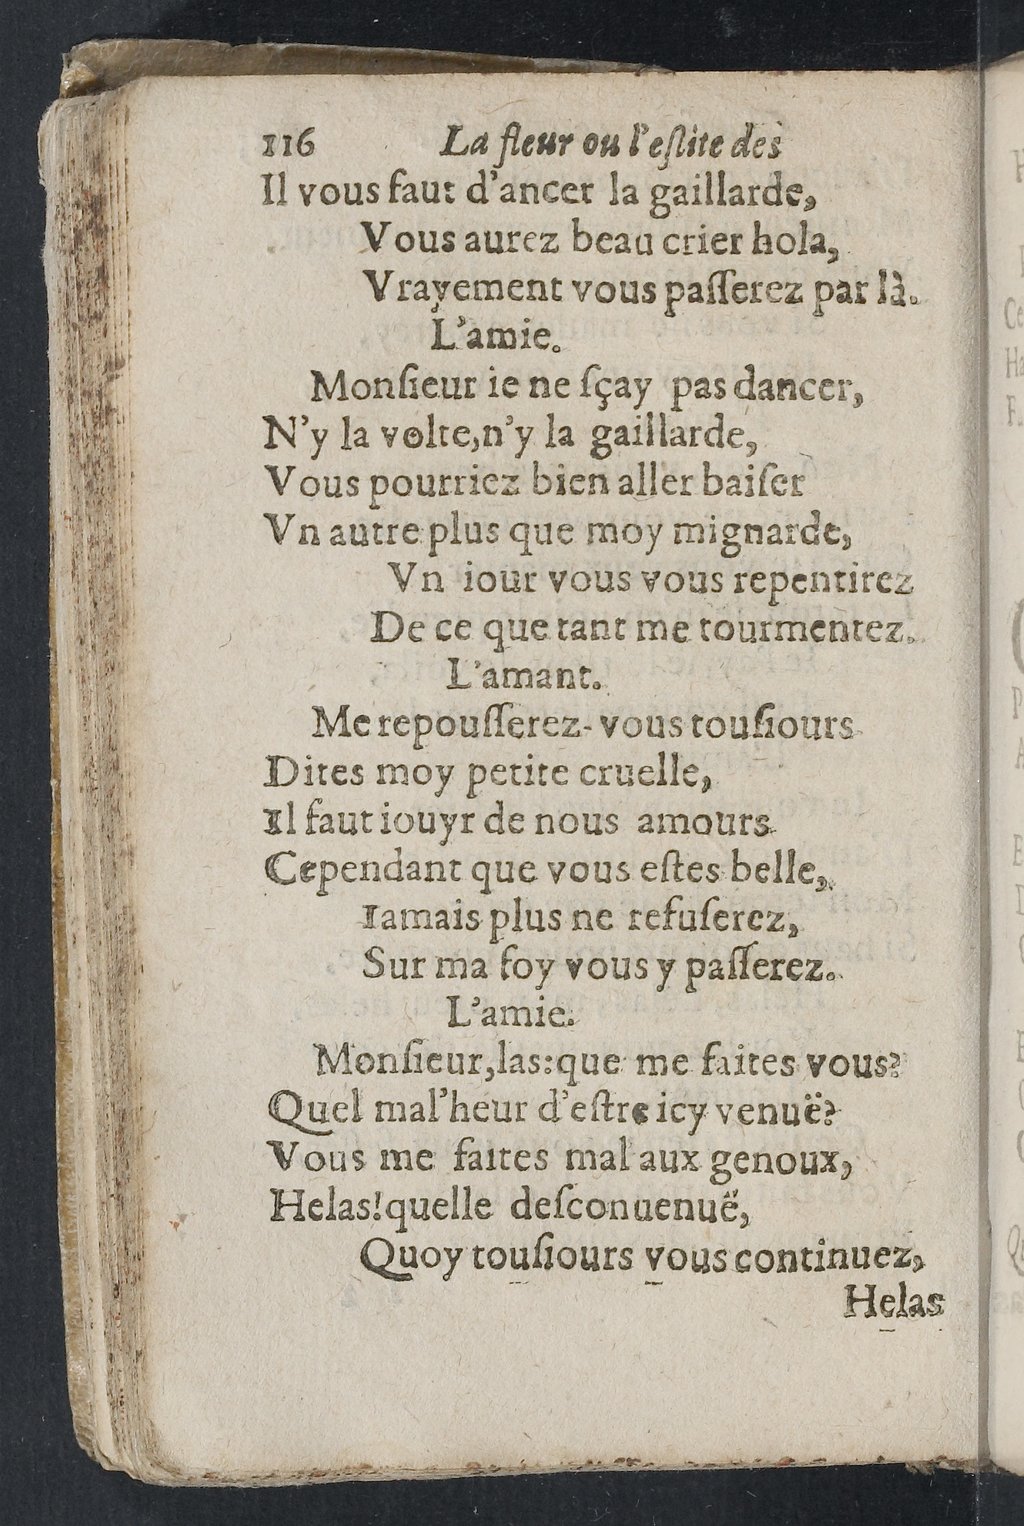 116 La fleur ou l'eſlite des
Il vous faut d'ancer la gaillarde,
Vous aurez beau crier hola,
Vrayement vous paſſerez par là.
L'amie.
Monſieur ie ne ſçay pas dancer,
N'y la volte,n'y la gaillarde,
Vous pourriez bien aller baiſer
Vn autre plus que moy mignarde,
Vn iour vous vous repentirez
De ce que tant me tourmentez.
L'amant.
Me repouſſerez-vous touſiours
Dites moy petite cruelle,
Il faut iouyr de nous amours
Cependant que vous eſtes belle,
Iamais plus ne refuſerez,
Sur ma foy vous y paſſerez.
L'amie.
Monſieur,las:que me faites vous?
Quel mal'heur d'eſtre icy venuë?
Vous me faites mal aux genoux,
Helas!quelle deſconuenuë,
Quoy touſiours vous continuez,
Helas